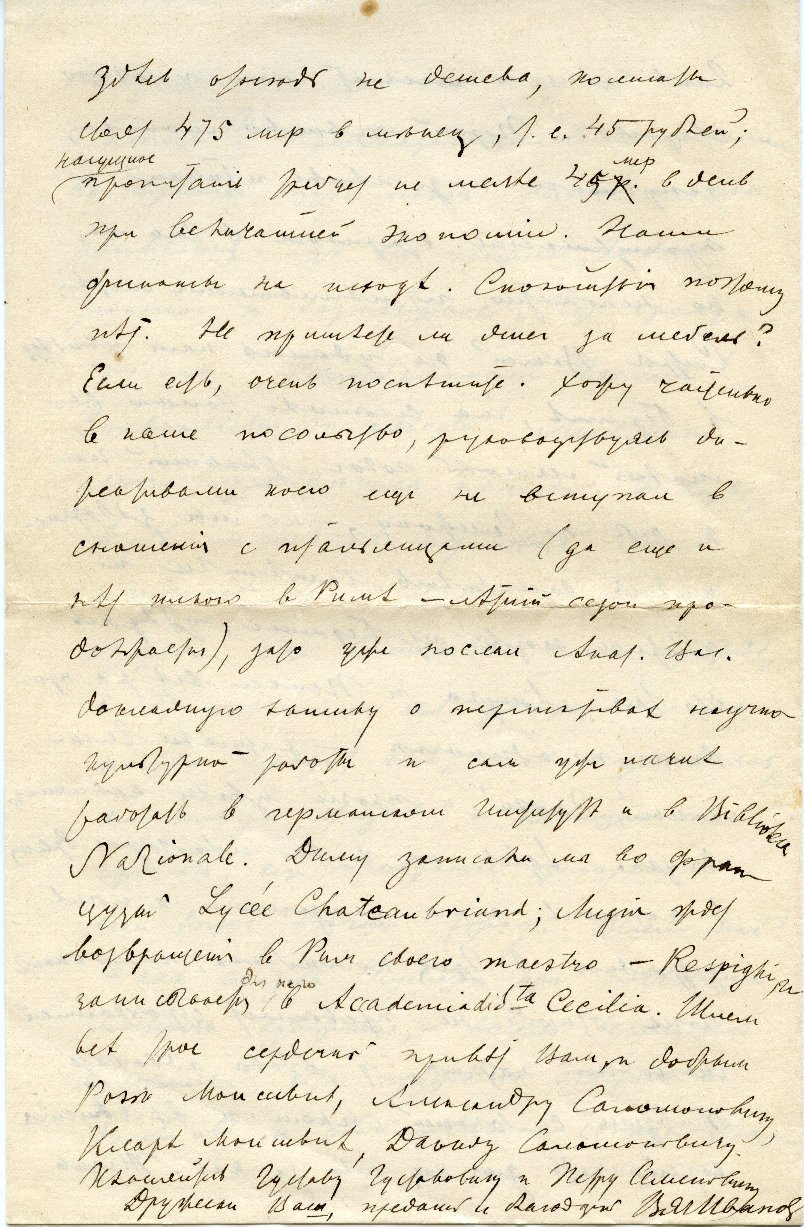 Здѣсь обоихъ не дешева, комнаты
стоят 475 лир в мѣсяц, т. е. 45 рублей;
насущное
пропитанiе требует не менѣе 45 лир в день
при величайшей экономiи. Наши
финансы на исходѣ. Спокойствiя поэтому
нѣт. Не пришлете ли денег за мебель?
Если есть, очень поспѣшите. Хожу частенько
в наше посольство, руководствуясь ди-
рективами коего еще не вступал в
сношенiя с итальянцами (да еще и
нѣт никого в Римѣ — лѣтнiй сезон про-
должается), зато уже послал Анат. Вас.
докладную записку о перспективѣ научно
культурной работы и сам уже начал
работать в германском Институтѣ и в Biblioteca
Nazionale. Диму записали мы во фран
цузскiй Lycée Chateaubriand; Лидiя ждет
возвращенiя в Рим своего maestro — Respighi, и
записывается для него в Accademia di Sta Cecilia. Шлем
всѣ трое сердечный привѣт Вам, и добрым
Розѣ Моисеевнѣ, Александру Соломоновичу,
Кларѣ Моисеевнѣ, Давиду Соломоновичу.
Кланяйтесь Густаву Густавовичу и Петру Семеновичу
Дружески Ваш, преданный и благодарный Вяч Иванов